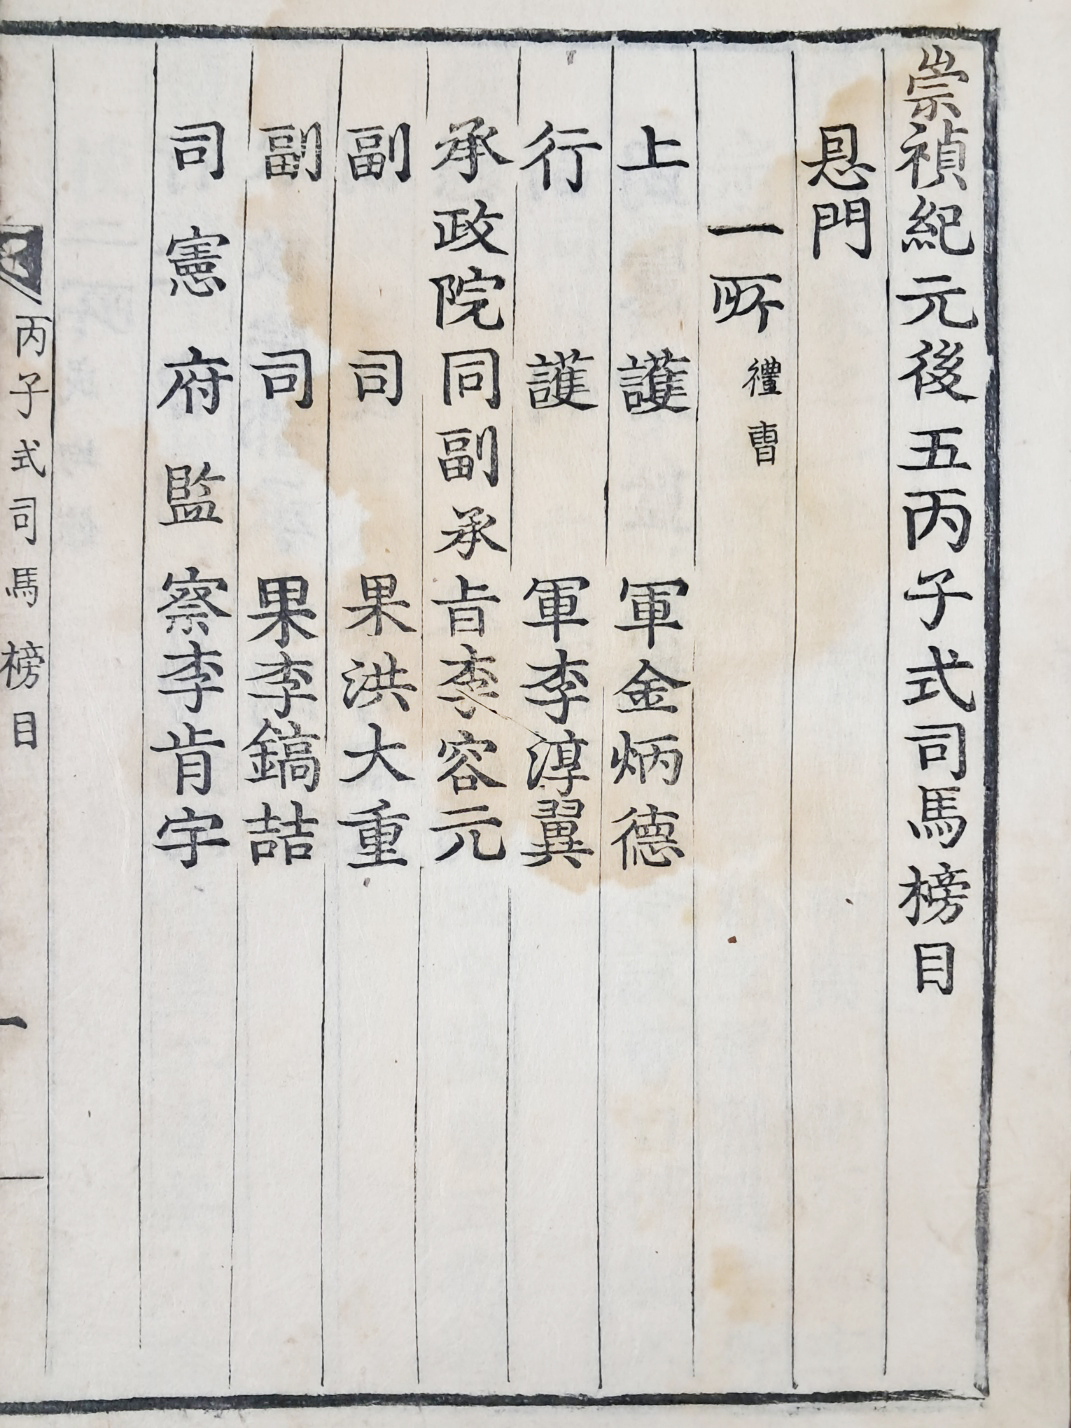 崇禎紀元後五丙子式司馬榜目
恩門
一所 禮曺
上護軍金炳德
行護軍李淳翼
承政院同副承旨李容元
副司果洪大重
副司果李鎬喆
司憲府監察李肯宇
丙子式司馬榜目 一